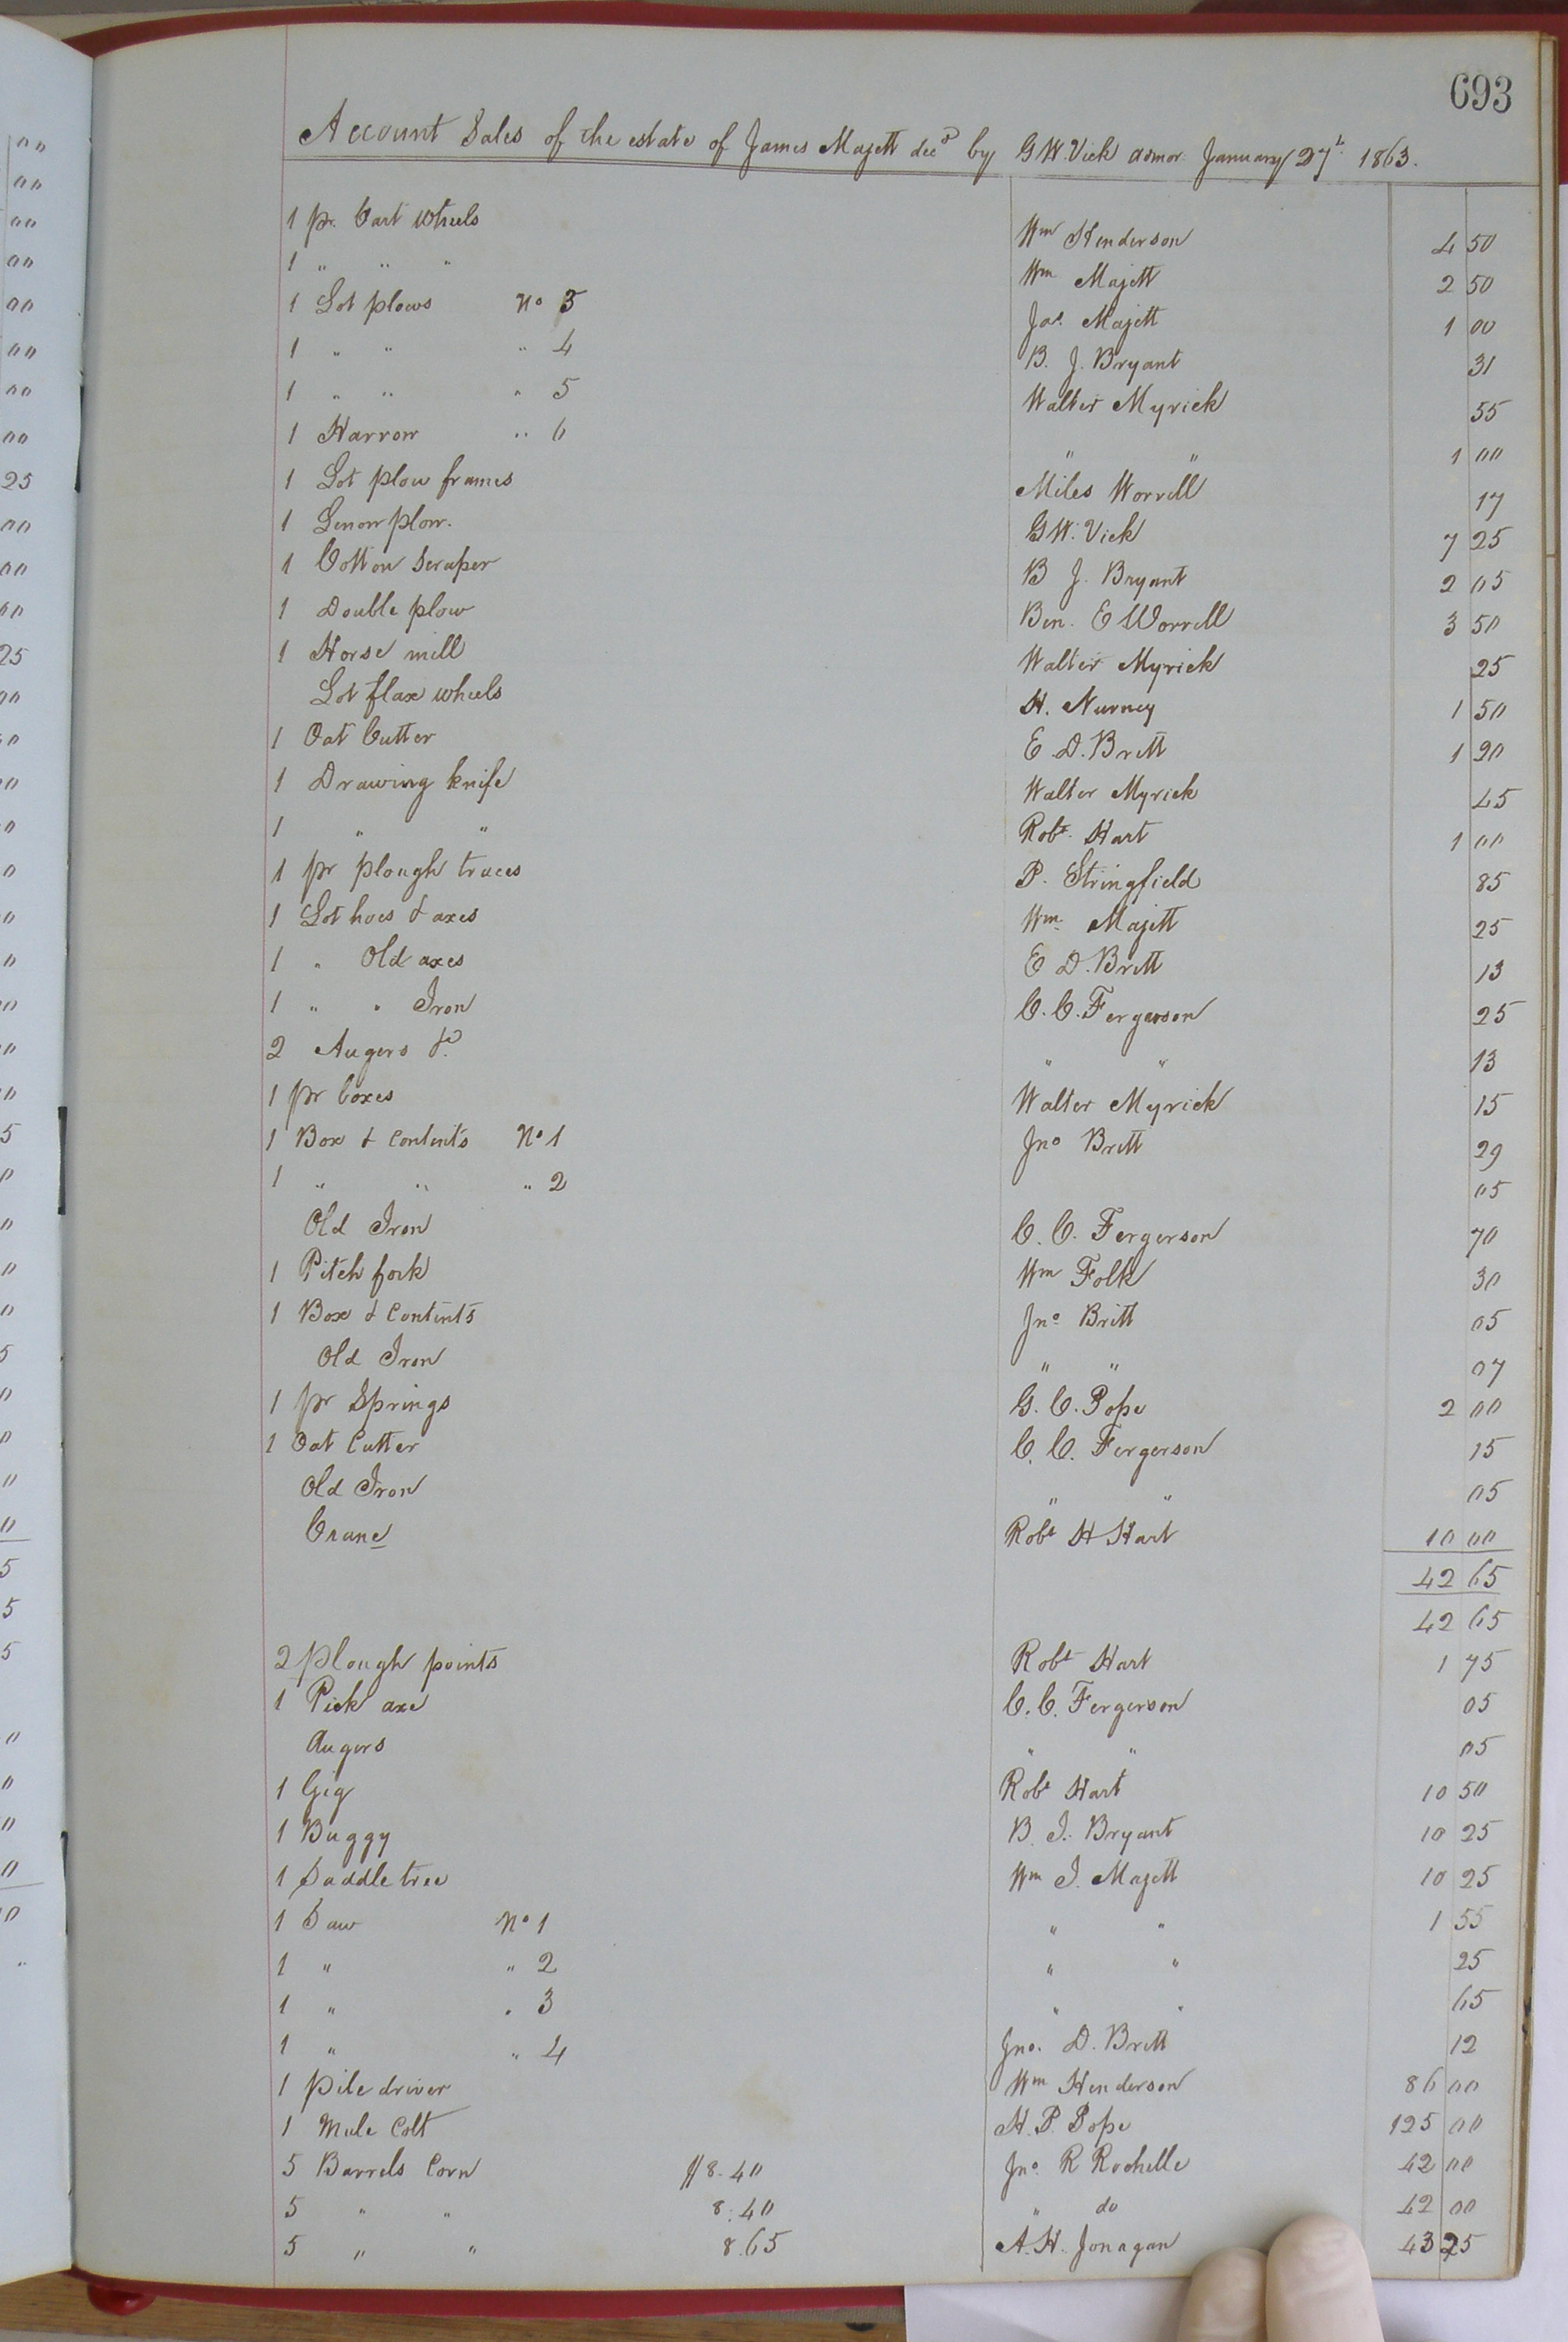 693
Account Sales of the estate of James Majett decd by G W. Vick admor. January 27th 1863.
1 pr. Cart wheels Wm Henderson 4 50
1 " " " Wm Majett 2 50
1 Lot plows No 3 Jas. Majett 1 00
1 " " " 4 B. J. Bryant 31
1 " " " 5 Walter Myrick 55
1 Harrow " 6 " " 1 00
1 Lot plow frames Miles Worrell 17
1 plow. G W. Vick 7 25
1 Cotton Scraper B J. Bryant 2 05
1 Double plow Ben. E Worrell 3 50
1 Horse mill Walter Myrick 25
Lot flax wheels H. Nurney 1 50
1 Oat Cutter E. D. Britt 1 20
1 Drawing knife Walter Myrick 45
1 " " Robt. Hart 1 00
1 pr plough traces P. Stringfield 85
1 Lot hoes & axes Wm. Majett 25
1 " Old axes E D. Britt 13
1 " " Iron C. C. Fergerson 25
2 Augers &c " " 13
1 pr boxes Walter Myrick 15
1 Box & Contents No 1 Jno Britt 29
1 " " " 2 05
Old Iron C. C. Fergerson 70
1 Pitch fork Wm Folk 30
1 Box & Contents Jno Britt 05
Old Iron " " 07
1 pr Springs G. C. Pope 2 00
1 Oat Cutter C. C. Fergerson 15
Old Iron " " 05
Crane Robt H Hart 10 00
42 65
42 65
2 plough points Robt Hart 1 75
1 Pick axe C. C. Fergerson 05
Augers " " 05
1 Gig Robt Hart 10 50
1 Buggy B. J. Bryant 10 25
1 Saddle tree Wm J. Majett 10 25
1 Saw No 1 " " 1 55
1 " " 2 " " 25
1 " " 3 " " 65
1 " " 4 Jno. D. Britt 12
1 pile driver Wm Henderson 86 00
1 Mule Colt H. P. Pope 125 00
5 Barrels Corn $8.40 Jno. R Rochelle 42 00
5 " " 8.40 " do 42 00
5 " " 8.65 A. H. Jonagan 43 25